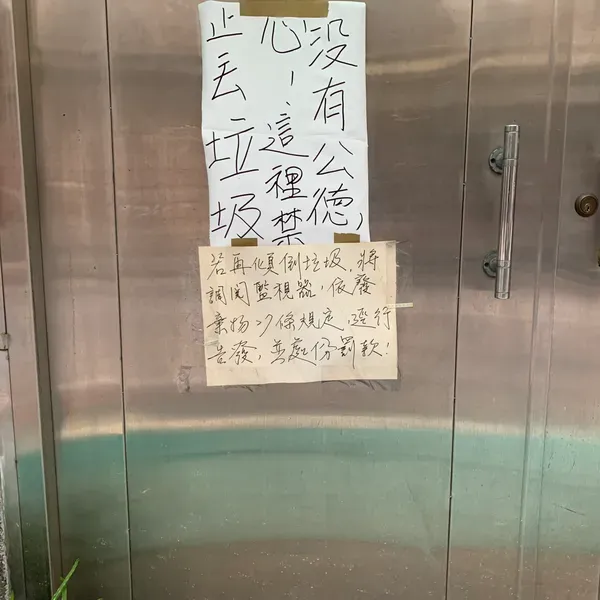 没有公德,
心!這裡禁
止丢垃圾
若再傾倒垃圾,將
調閱監視器,依廢
棄物27條規定,逕行
告發,並處份罰款!